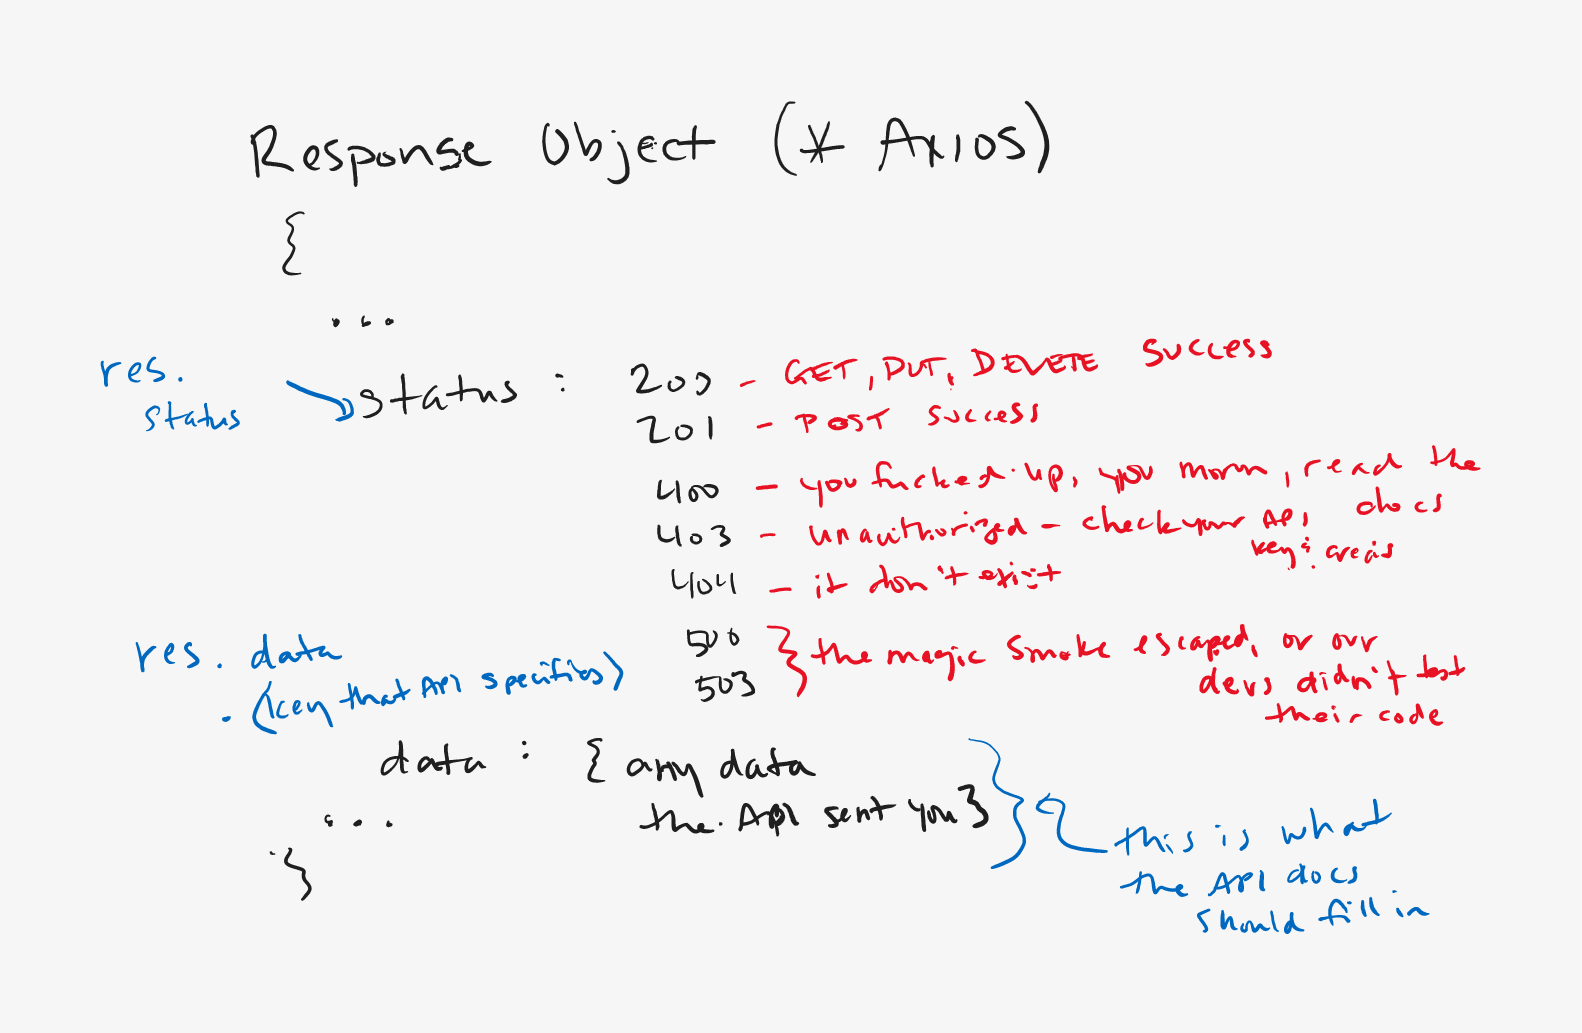 Response Object (* Axios)
{
...
res.
status
status : 200 - GET, PUT, DELETE success
201 - POST success
400 - you fucked up, you moron, read the
docs
403 - unauthorized - check your API
key &
404 - it don't exist
500
503 } the magic smoke escaped, or our
devs didn't test
their code
res. data
. (key that API specifies)
data : { any data
the API sent you }
...
}
this is what
the API docs
should fill in